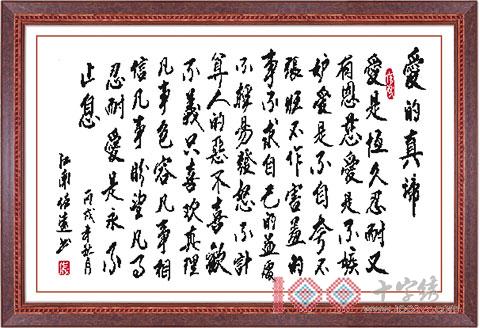 愛的真諦
愛是恒久忍耐又
有恩慈愛是不嫉
妒愛是不自夸不
張狂不作害羞的
事不求自己的益處
不輕易發怒不計
算人的惡不喜歡
不義只喜歡真理
凡事包容凡事相
信凡事盼望凡事
忍耐愛是永不
止息
丙戌年秋月
江南
100十字绣